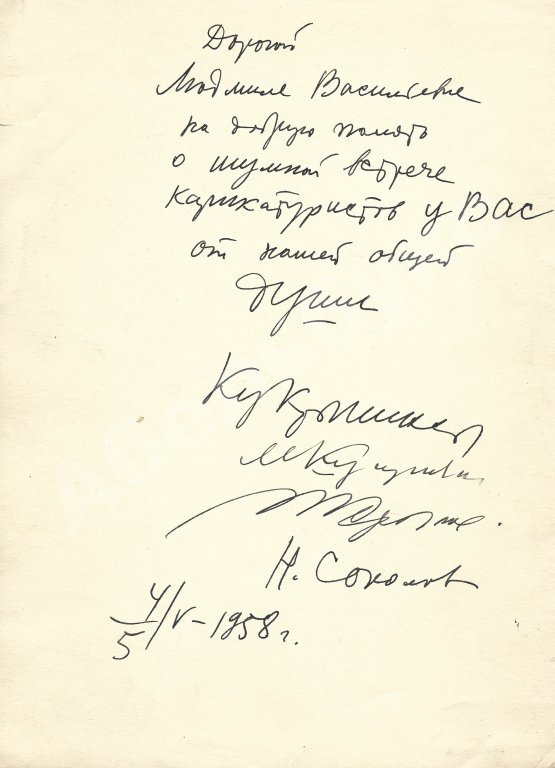 Дорогой
Людмиле Васильевне
на добрую память
о шумной встрече
карикатуристов у Вас
от нашей общей
души
Кукрыниксы
М Куприянов
П Крылов.
Н. Соколов
4/5/V – 1958 г.